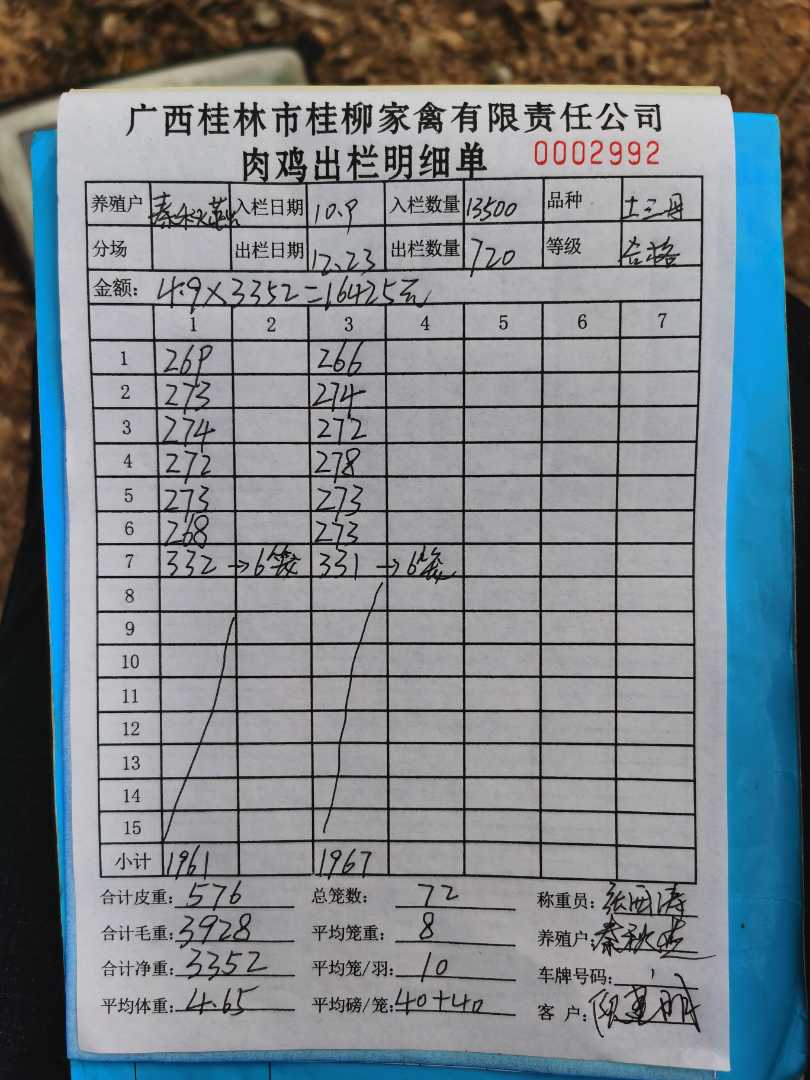 广西桂林市桂柳家禽有限责任公司
肉鸡出栏明细单 0002992
养殖户 秦秋 入栏日期 10.9 入栏数量 13500 品种 土三号
分场 出栏日期 12.23 出栏数量 720 等级 合格
金额: 4.9×3352=16425元
1 2 3 4 5 6 7
1 269 266
2 273 274
3 274 272
4 272 278
5 273 273
6 268 273
7 332 →6笼 331 →6笼
8
9
10
11
12
13
14
15
小计 1961 1967
合计皮重: 576 总笼数: 72 称重员:
合计毛重: 3928 平均笼重: 8 养殖户: 秦秋
合计净重: 3352 平均笼/羽: 10 车牌号码:
平均体重: 4.65 平均磅/笼: 40+40 客 户: